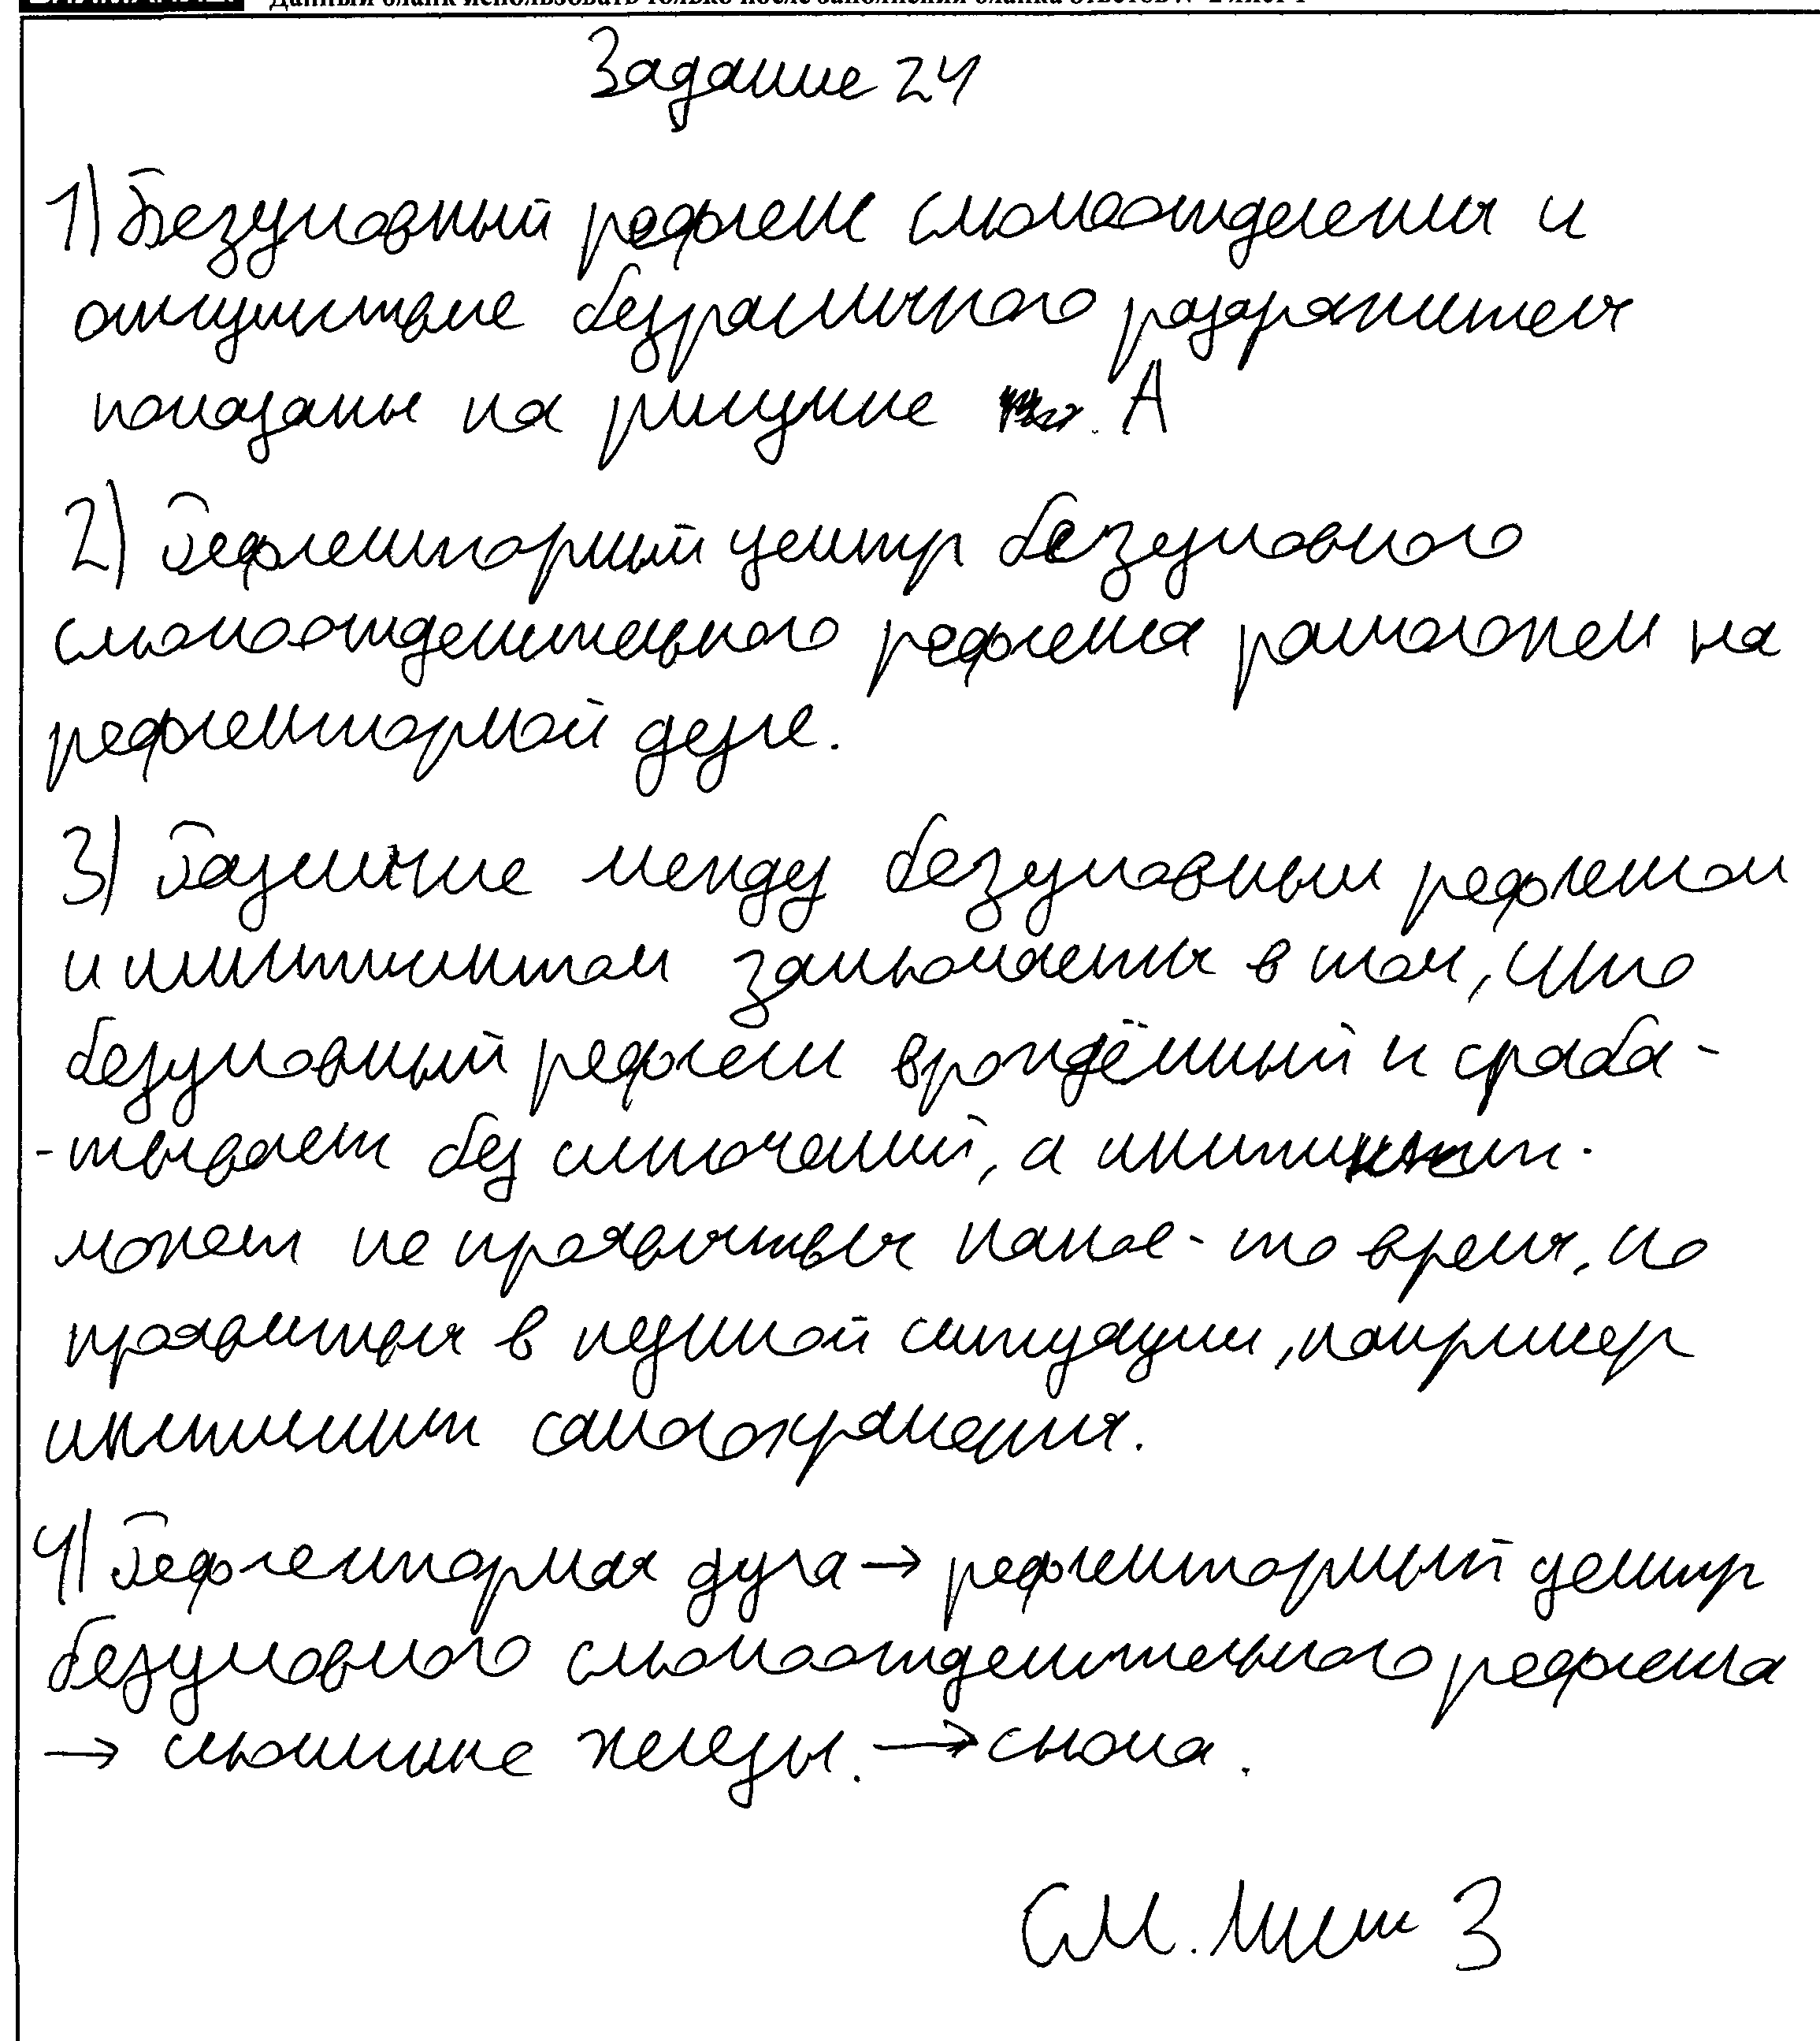 Данный бланк использовать только после заполнения бланка ответов № 2 лист 1
Задание 24
1) Безусловный рефлекс слюноотделения и
отсутствие безразличного раздражителя
показаны на рисунке А
2) Рефлекторный центр безусловного
слюноотделительного рефлекса расположен на
рефлекторной дуге.
3) Различие между безусловным рефлексом
и инстинктом заключается в том, что
безусловный рефлекс врождённый и сраба-
-тывает без исключений, а инстинкт
может не проявляться какое-то время, но
проявиться в нужной ситуации, например
инстинкт самосохранения.
4) Рефлекторная дуга → рефлекторный центр
безусловного слюноотделительного рефлекса
→ слюнные железы. → слюна.
См. Лист 3